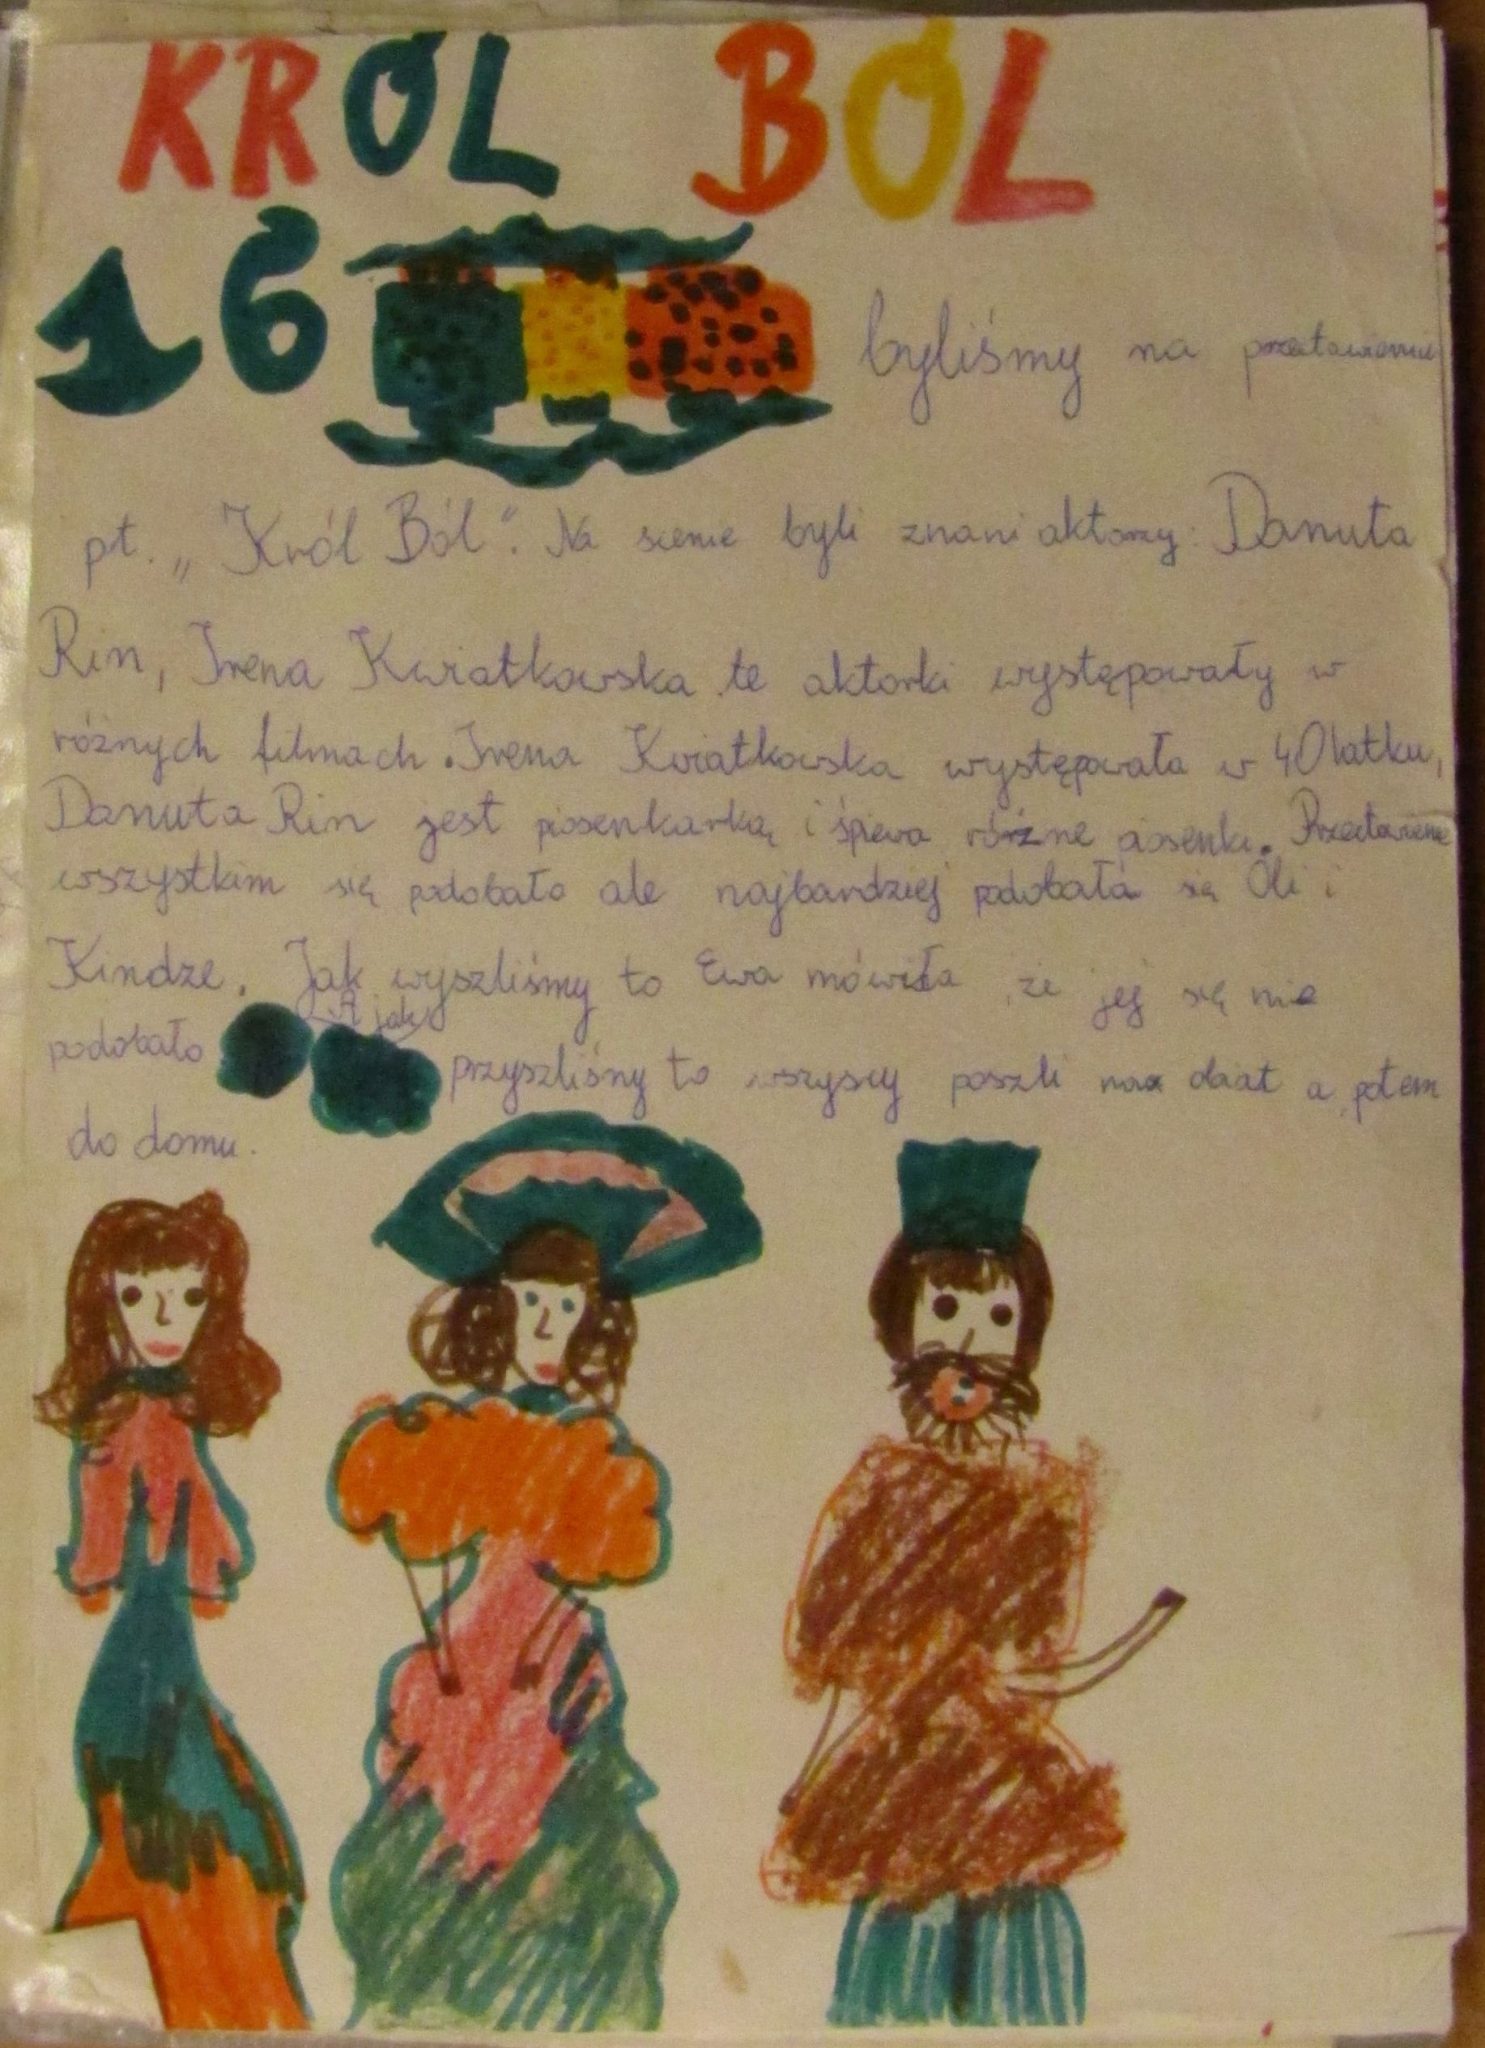 KRÓL BÓL
16 III byliśmy na
pt. „Król Ból". Na scenie byli znani aktorzy: Danuta
Rin, Irena Kwiatkowska te aktorki występowały w
różnych filmach. Irena Kwiatkowska występowała w 40latku,
Danuta Rin jest piosenkarką i śpiewa różne piosenki.
wszystkim się podobało ale najbardziej podobała się Oli i
Kindze. Jak wyszliśmy to Ewa mówiła że jej się nie
podobało A jak przyszliśmy to wszyscy poszli na obiat a potem
do domu.